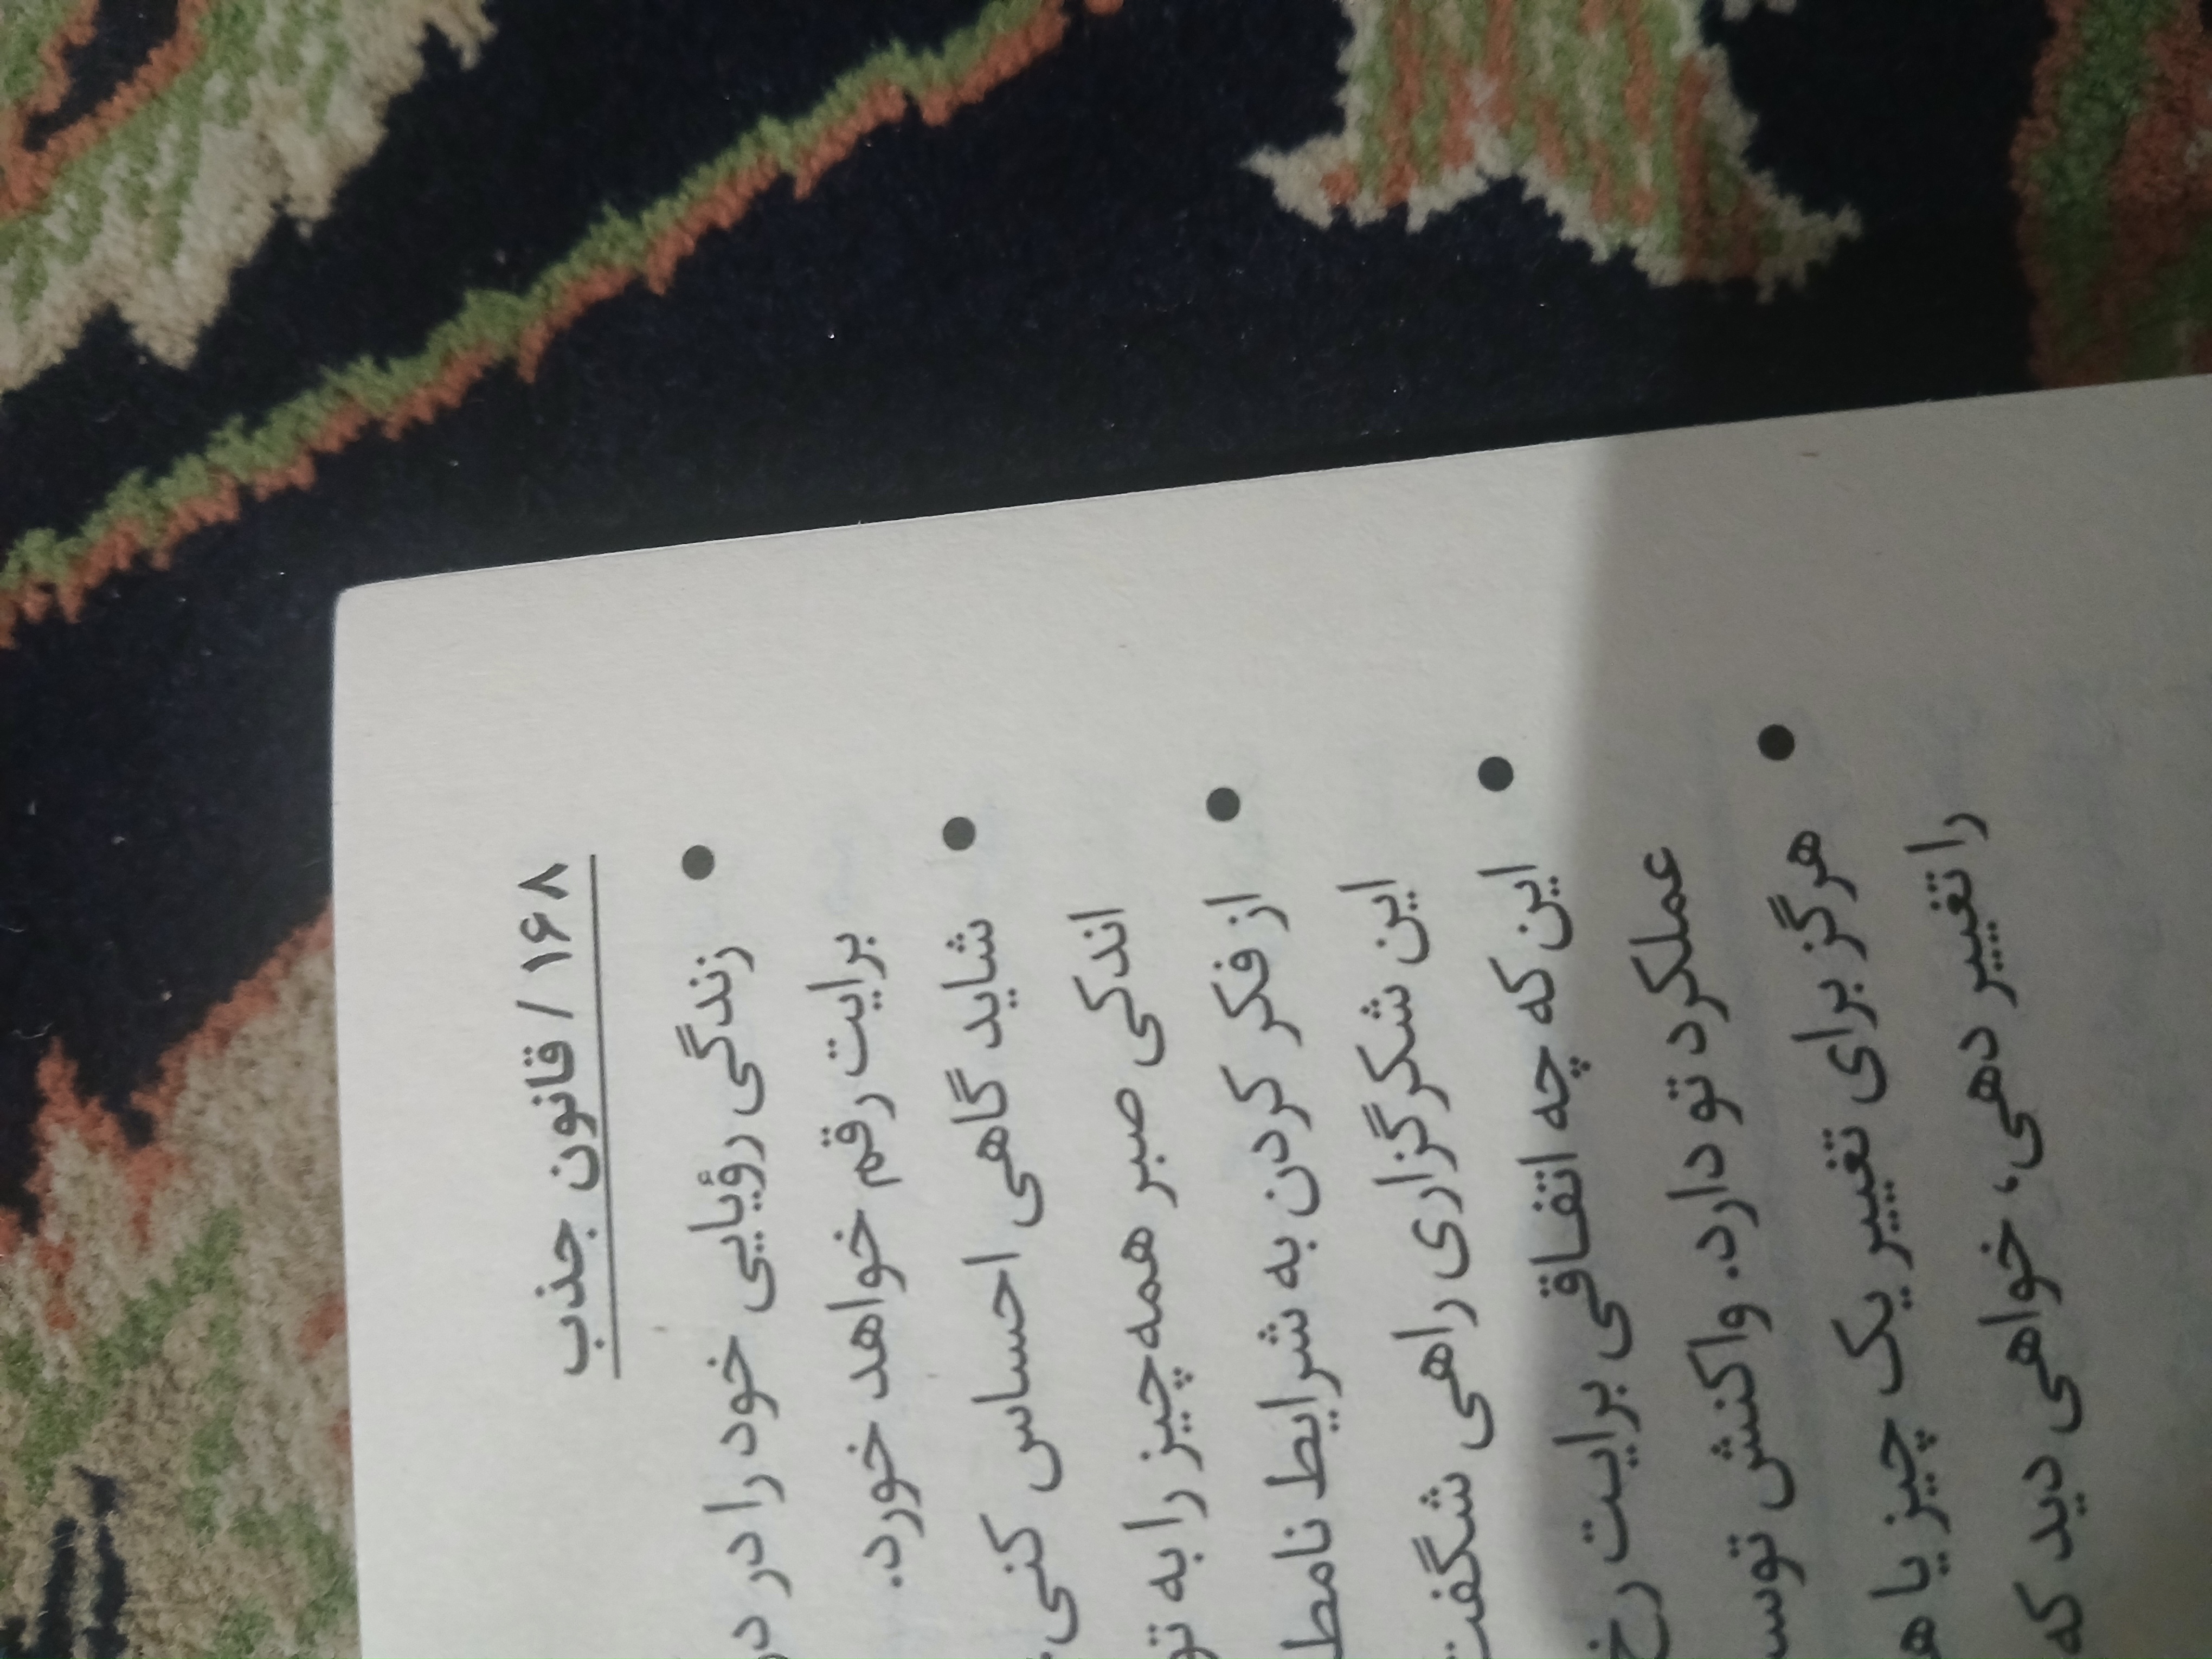 ۱۶۸ / قانون جذب
● زندگی رؤیایی خود را در
برایت رقم خواهد خورد.
● شاید گاهی احساس کنی
اندکی صبر همه‌چیز را به
● از فکر کردن به شرایط
این شکرگزاری راهی
● این که چه اتفاقی برایت
عملکرد تو دارد. واکنش
● هرگز برای تغییر یک چیز یا
را تغییر دهی، خواهی دید که